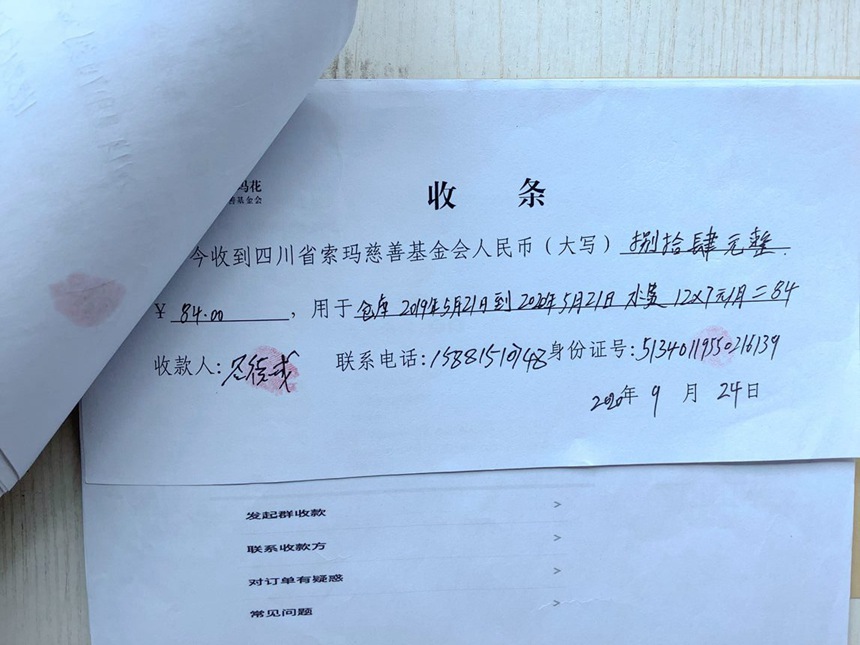 玛花
善基金会
收 条
今收到四川省索玛慈善基金会人民币（大写）捌拾肆元整.
￥ 84.00 ，用于仓库2019年5月21日到2020年5月21日 水费 12×7元/月=84
收款人: 联系电话:15881510748身份证号:51340119550216139
2020年 9 月 24日
发起群收款 >
联系收款方 >
对订单有疑惑 >
常见问题 >